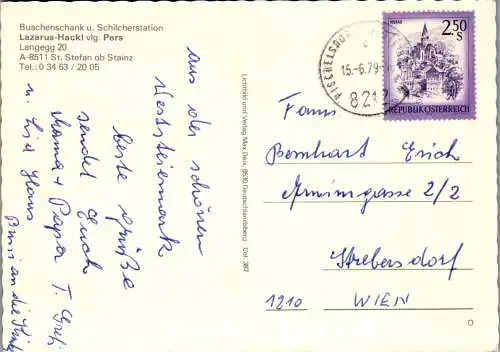 Buschenschank u. Schilcherstation
Lazarus-Hackl vlg. Pers
Langegg 20
A-8511 St. Stefan ob Stainz
Tel.: 0 34 63 / 20 05
aus der schönen
Weststeiermark
beste Grüße
sendet Euch
Mama + Papa T. Greti
u. Lisl Hans
Bussi an die Kinder
Lichtbild und Verlag Max Dein, 8530 Deutschlandsberg - Col. 387
PISCHELSDORF
15.-6.79
8212
2.50
S
REPUBLIK ÖSTERREICH
Fam.
Bernhart Erich
Arminigasse 2/2
Strebersdorf
1210 WIEN